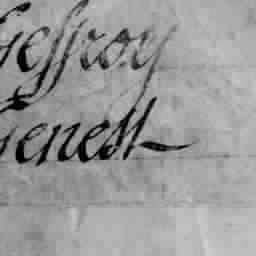 Geffroy
Genest